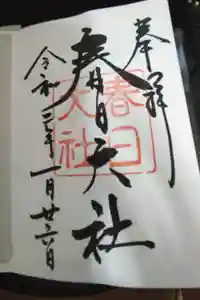 奉拝
春日大社
春日大社
令和二年一月廿六日